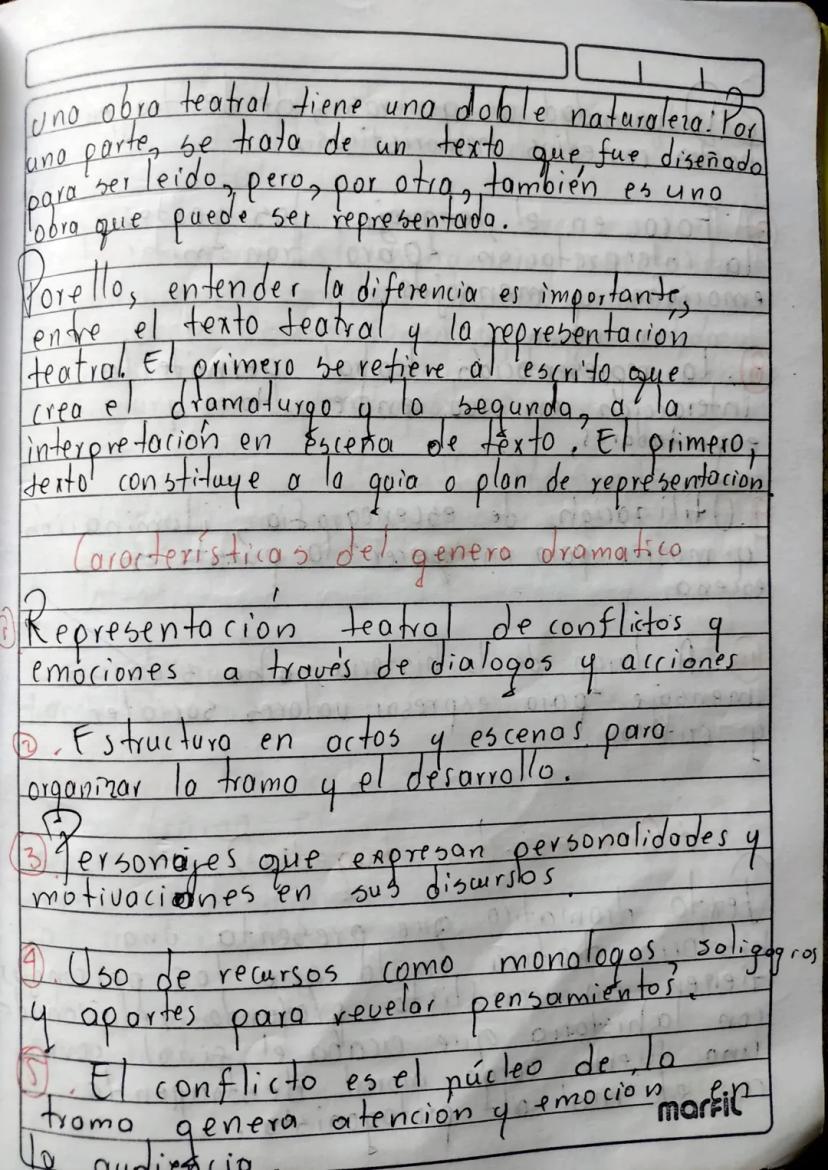 Una obra teatral tiene una doble naturaleza: Por
una parte, se trata de un texto que fue diseñado
para ser leido, pero, por otra, también es una
obra que puede ser representada.
Por ello, entender la diferencia es importante,
entre el texto teatral y la representación
teatral. El primero se refiere al escrito que
crea el dramaturgo y la segunda, a la
interpretación en escena de texto. El primero,
texto constituye a la guia o plan de representacion
Características del genero dramatico
1 Representación teatral de conflictos y
emociones a través de dialogos y acciones
2. Estructura en actos y escenas para
organizar la trama y el desarrollo.
3 Personajes que expresan personalidades y
motivaciones en sus discursos.
4. Uso de recursos como monologos,
y apartes para revelar pensamientos.
5. El conflicto es el núcleo de la
trama genera atención y emocion en
la audiencia
marfil